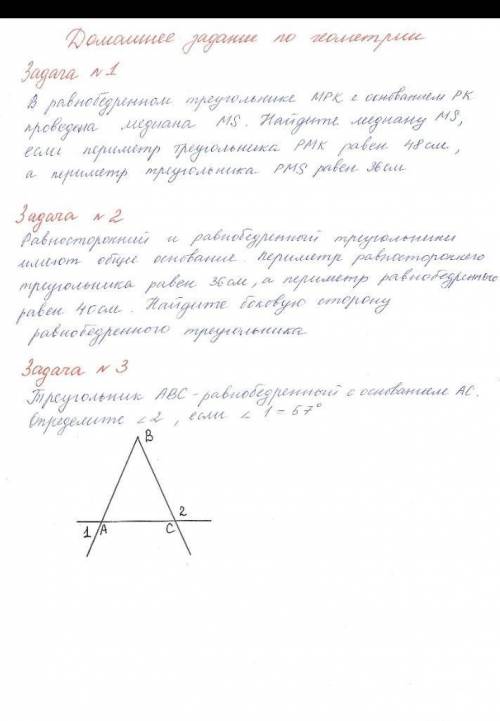 Домашнее задание по геометрии
Задача №1
В равнобедренном треугольнике МРК с основанием РК
проведена медиана MS. Найдите медиану MS,
если периметр треугольника РМК равен 48 см,
а периметр треугольника PMS равен 36 см
Задача №2
Равносторонний и равнобедренный треугольники
имеют общее основание. Периметр равностороннего
треугольника равен 36 см, а периметр равнобедренного
равен 40 см. Найдите боковую сторону
равнобедренного треугольника
Задача №3
Треугольник АВС - равнобедренный с основанием АС.
Определите ∠2, если ∠1 = 57°
В
1 А С 2